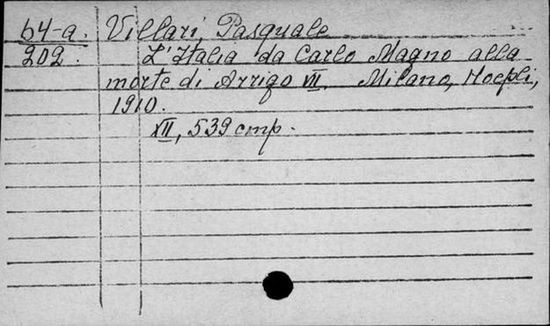 64-a. Villari, Pasquale
202. L'Italia da Carlo Magno alla
morte di Arrigo VII. Milano, Hoepli,
1910.
XII, 539 cmp.